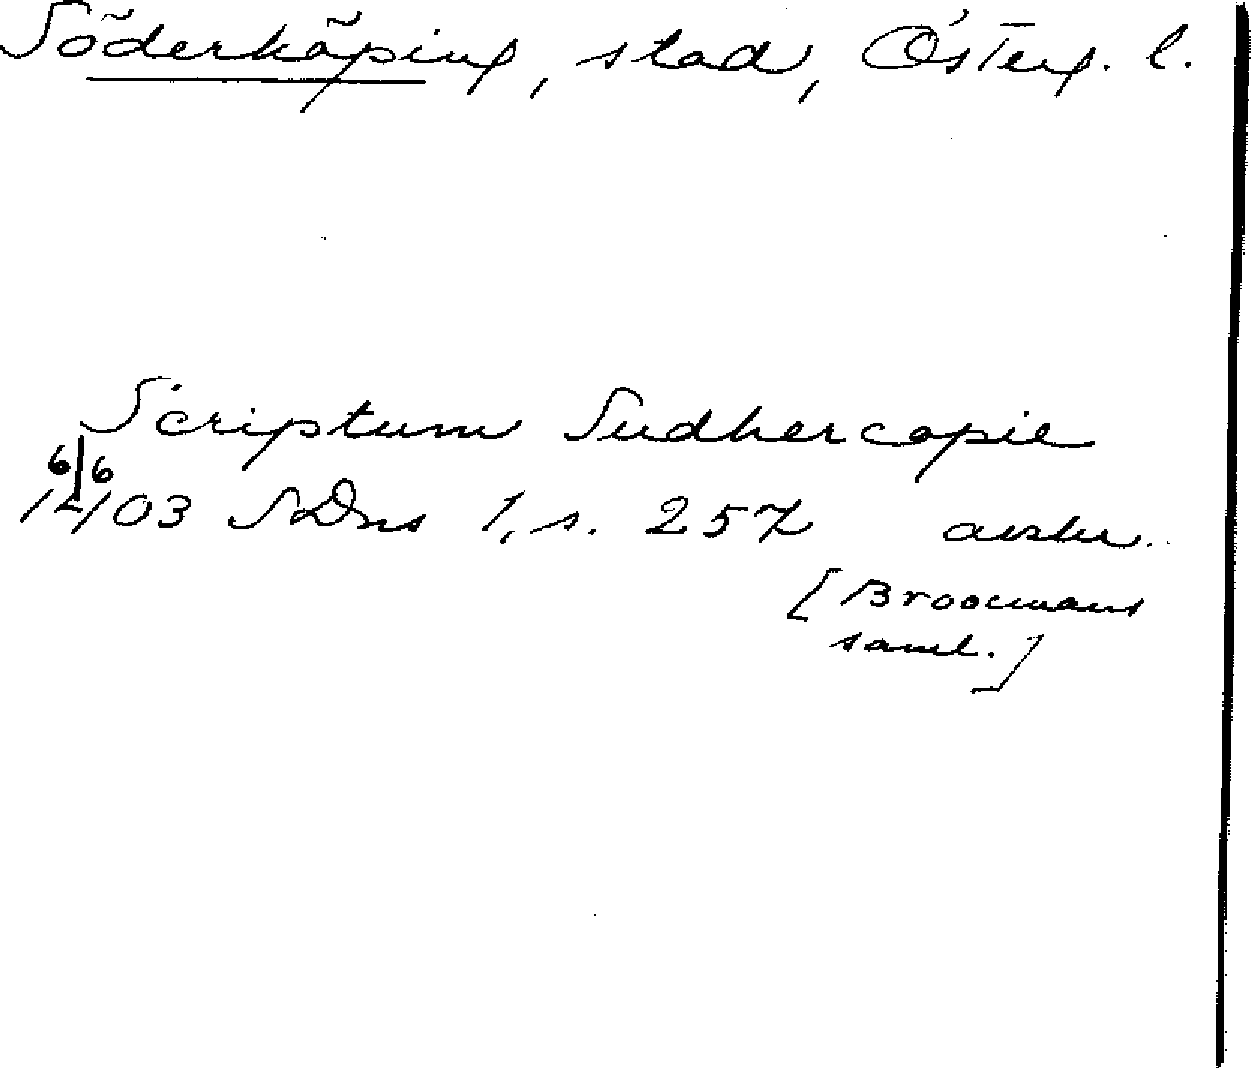 Söderköping, stad, Österg. l.
Scriptum Sudhercopie
6/6
14/03 SDns 1, s. 257 avskr.
[Broocmans
saml.]